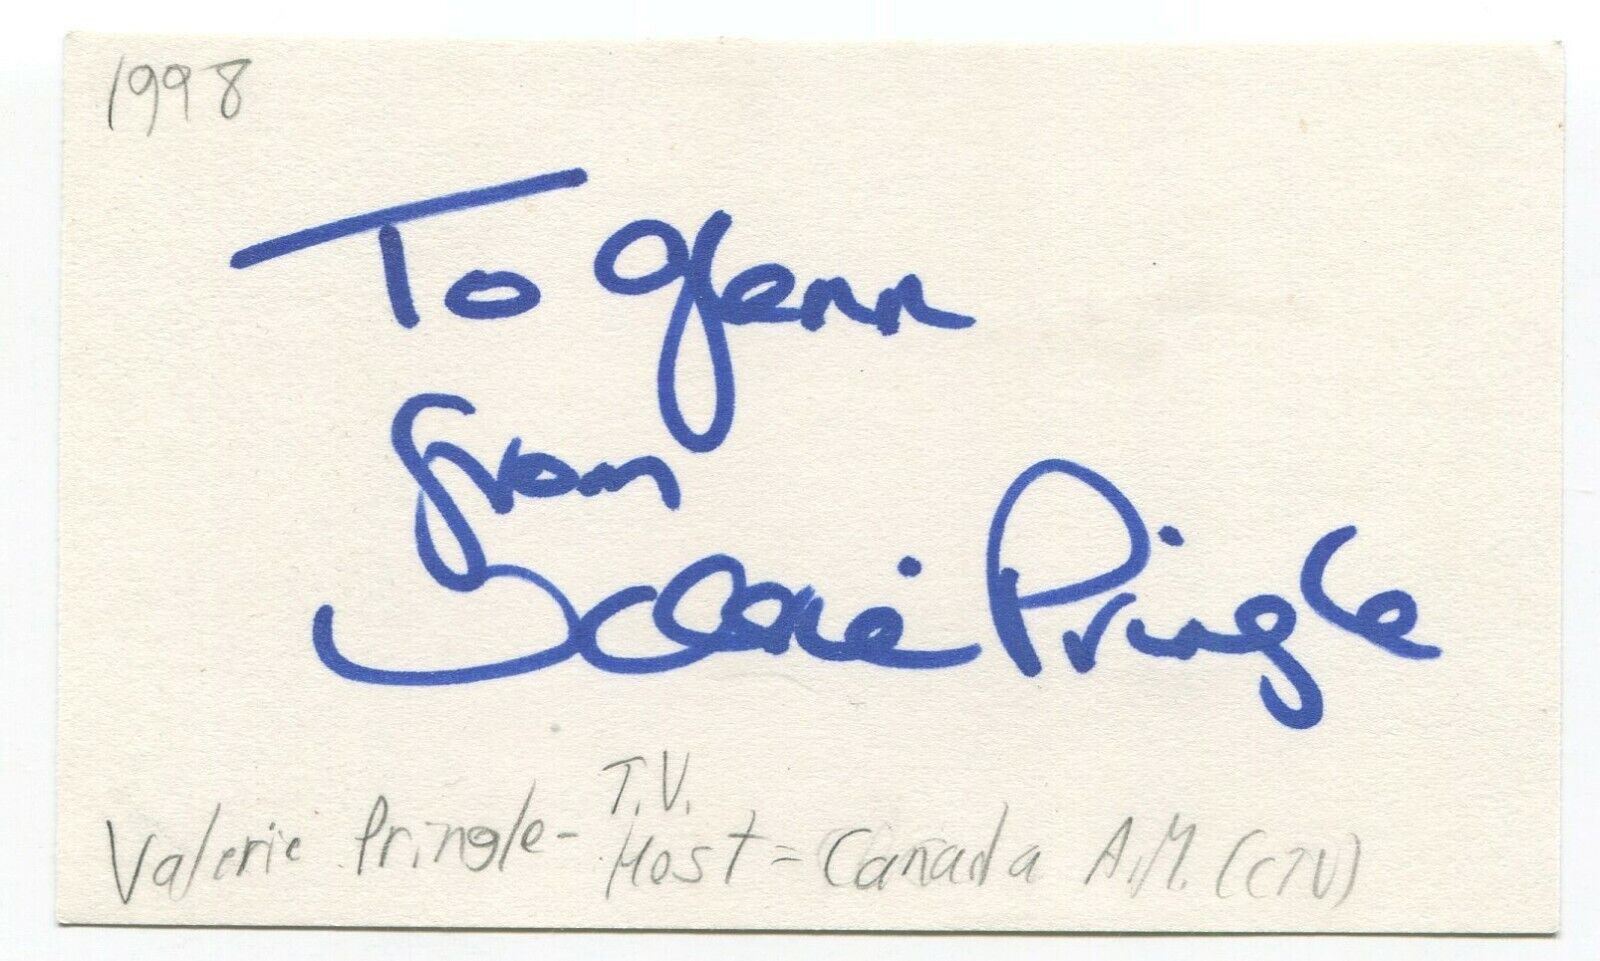 1998
To Glenn
from
Valerie Pringle
T.V.
Valerie Pringle - Host = Canada A.M. (CTV)